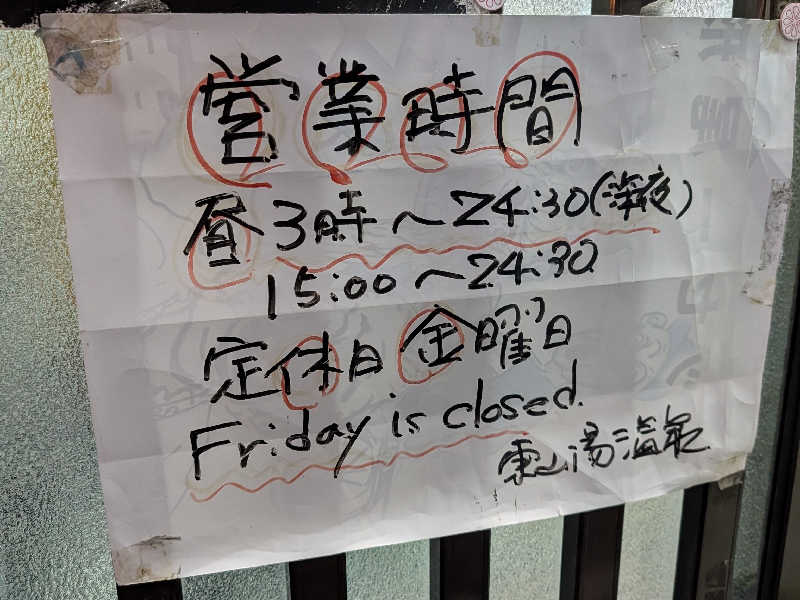 営業時間
昼3時～24:30(深夜)
15:00～24:30
定休日 金曜日
Friday is closed.
東山湯温泉